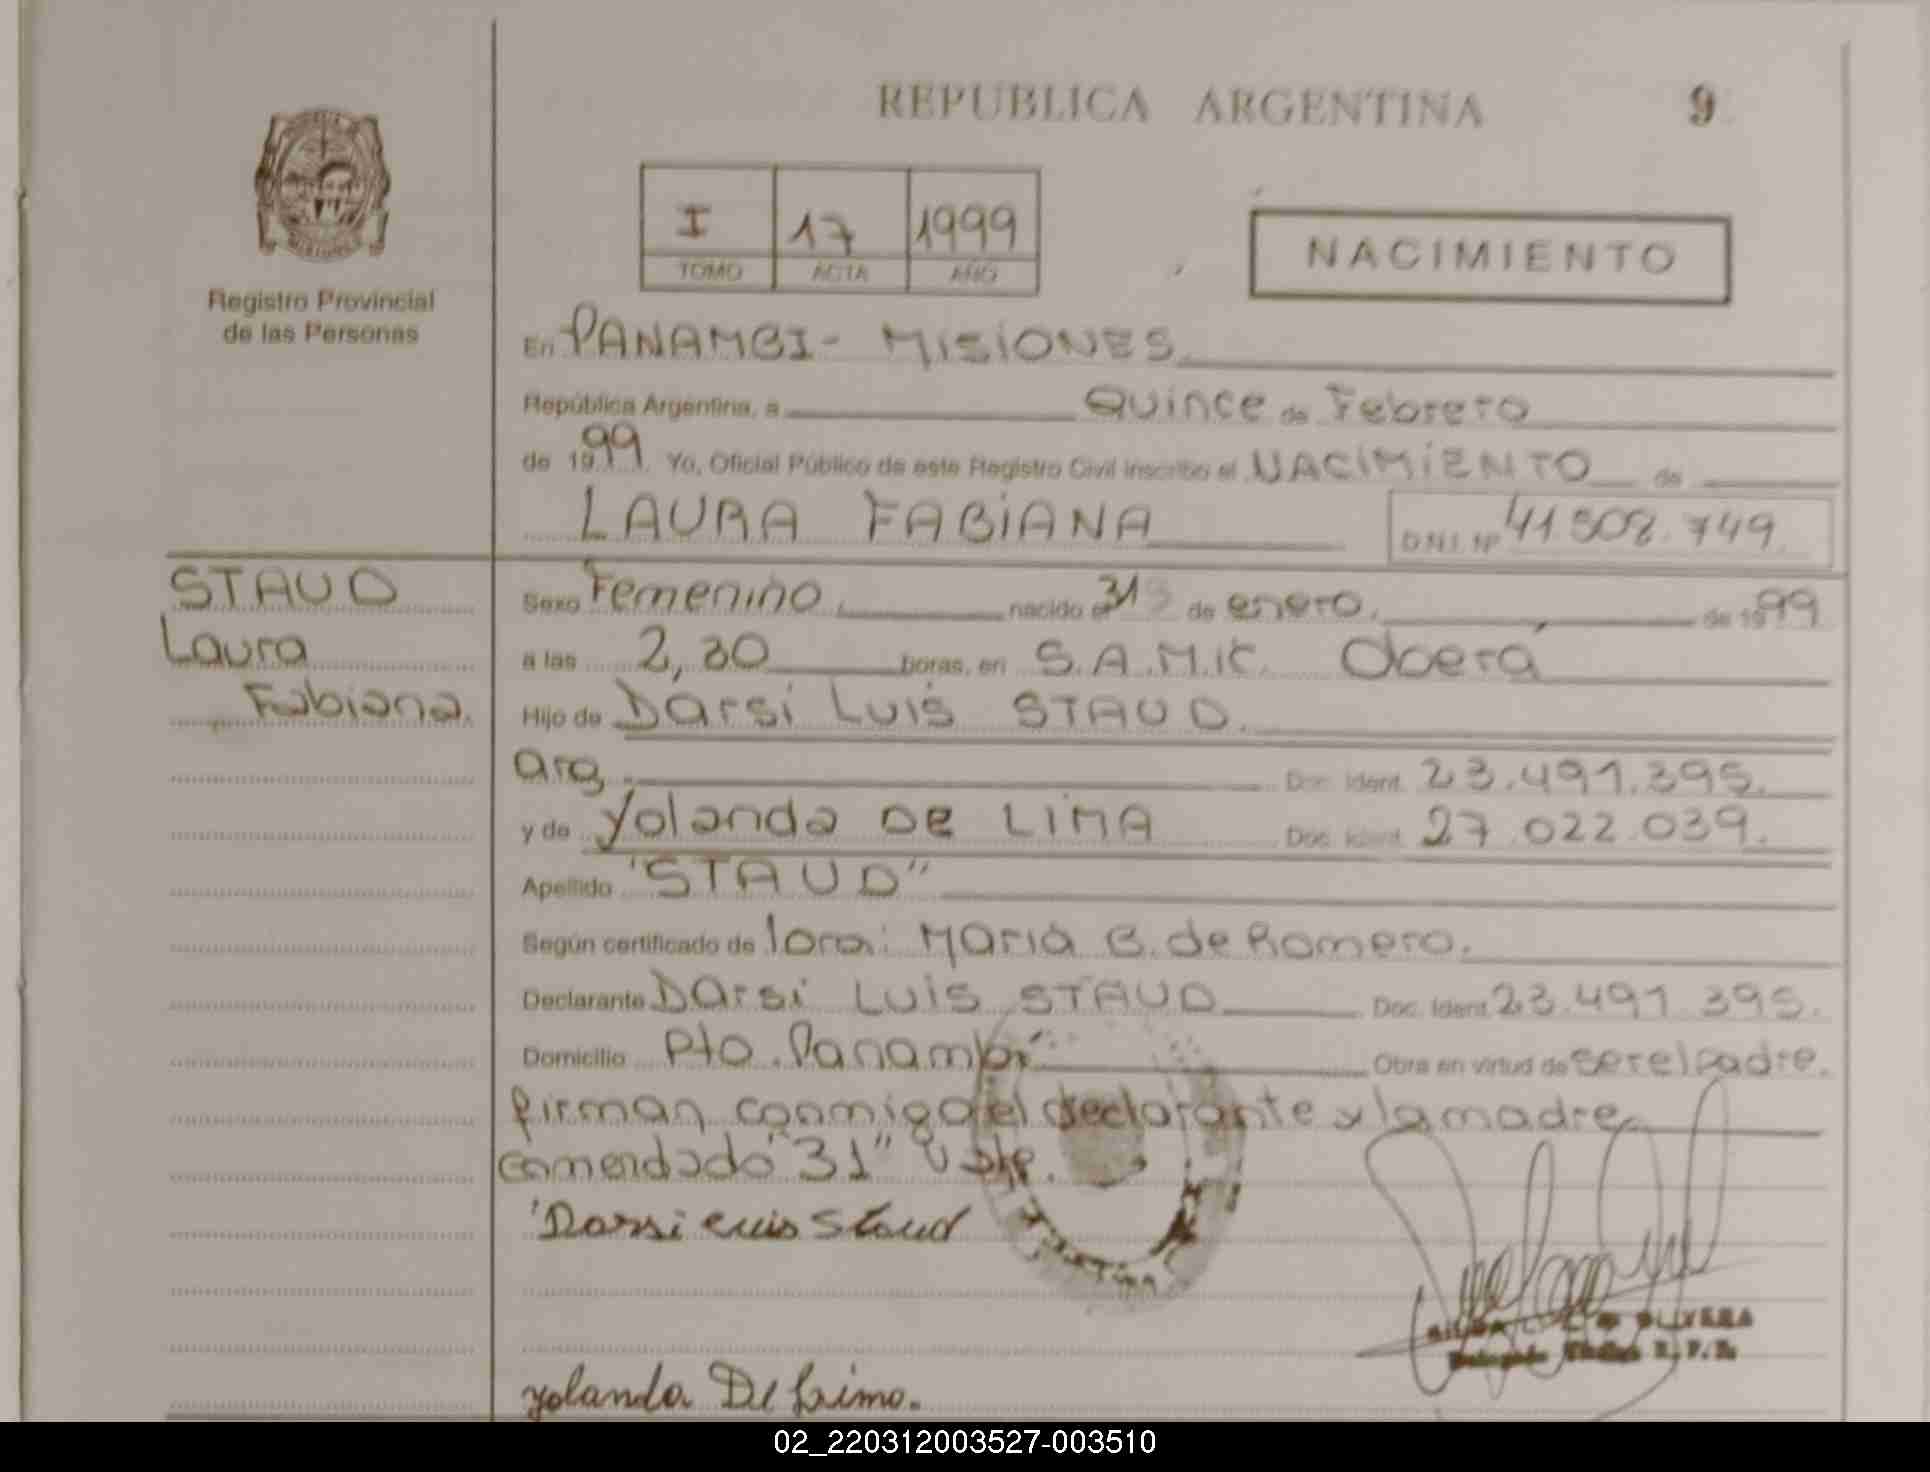 REPUBLICA ARGENTINA 9
Registro Provincial
de las Personas
I 17 1999
TOMO ACTA AÑO
NACIMIENTO
En PANAMBI - MISIONES
República Argentina, a Quince de Febrero
de 1999. Yo, Oficial Público de este Registro Civil inscribo el NACIMIENTO de
LAURA FABIANA
DNI. Nº 41.508.749
STAUD
Laura
Fabiana.
Sexo Femenino nacido el 31 de enero. de 1999
a las 2,30 horas, en S.A.M.IC. Oberá
Hijo de Darsi Luis STAUD.
arg. Doc. Ident. 23.491.395.
y de Yolanda DE LIMA Doc. Ident. 27.022.039.
Apellido "STAUD"
Según certificado de María B. de Romero.
Declarante Darsi LUIS STAUD Doc. Ident. 23.491.395.
Domicilio Pto. Panambí Obra en virtud de ser el padre.
firman conmigo el declarante y la madre
enmendado "31" Vale.
Darsi Luis Staud
OLIVERA
R. P. P.
Yolanda De Lima.
02_220312003527-003510